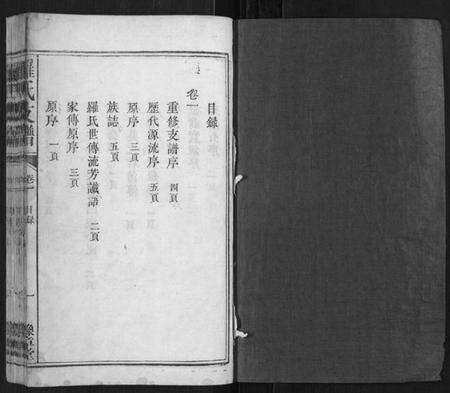 目錄
卷一
重修支譜序 四頁
歷代源流序 五頁
原序 三頁
族誌 五頁
羅氏世傳流芳讖語 二頁
家傳原序 三頁
原序 一頁
羅氏支譜
卷一
目錄
一
豫章堂